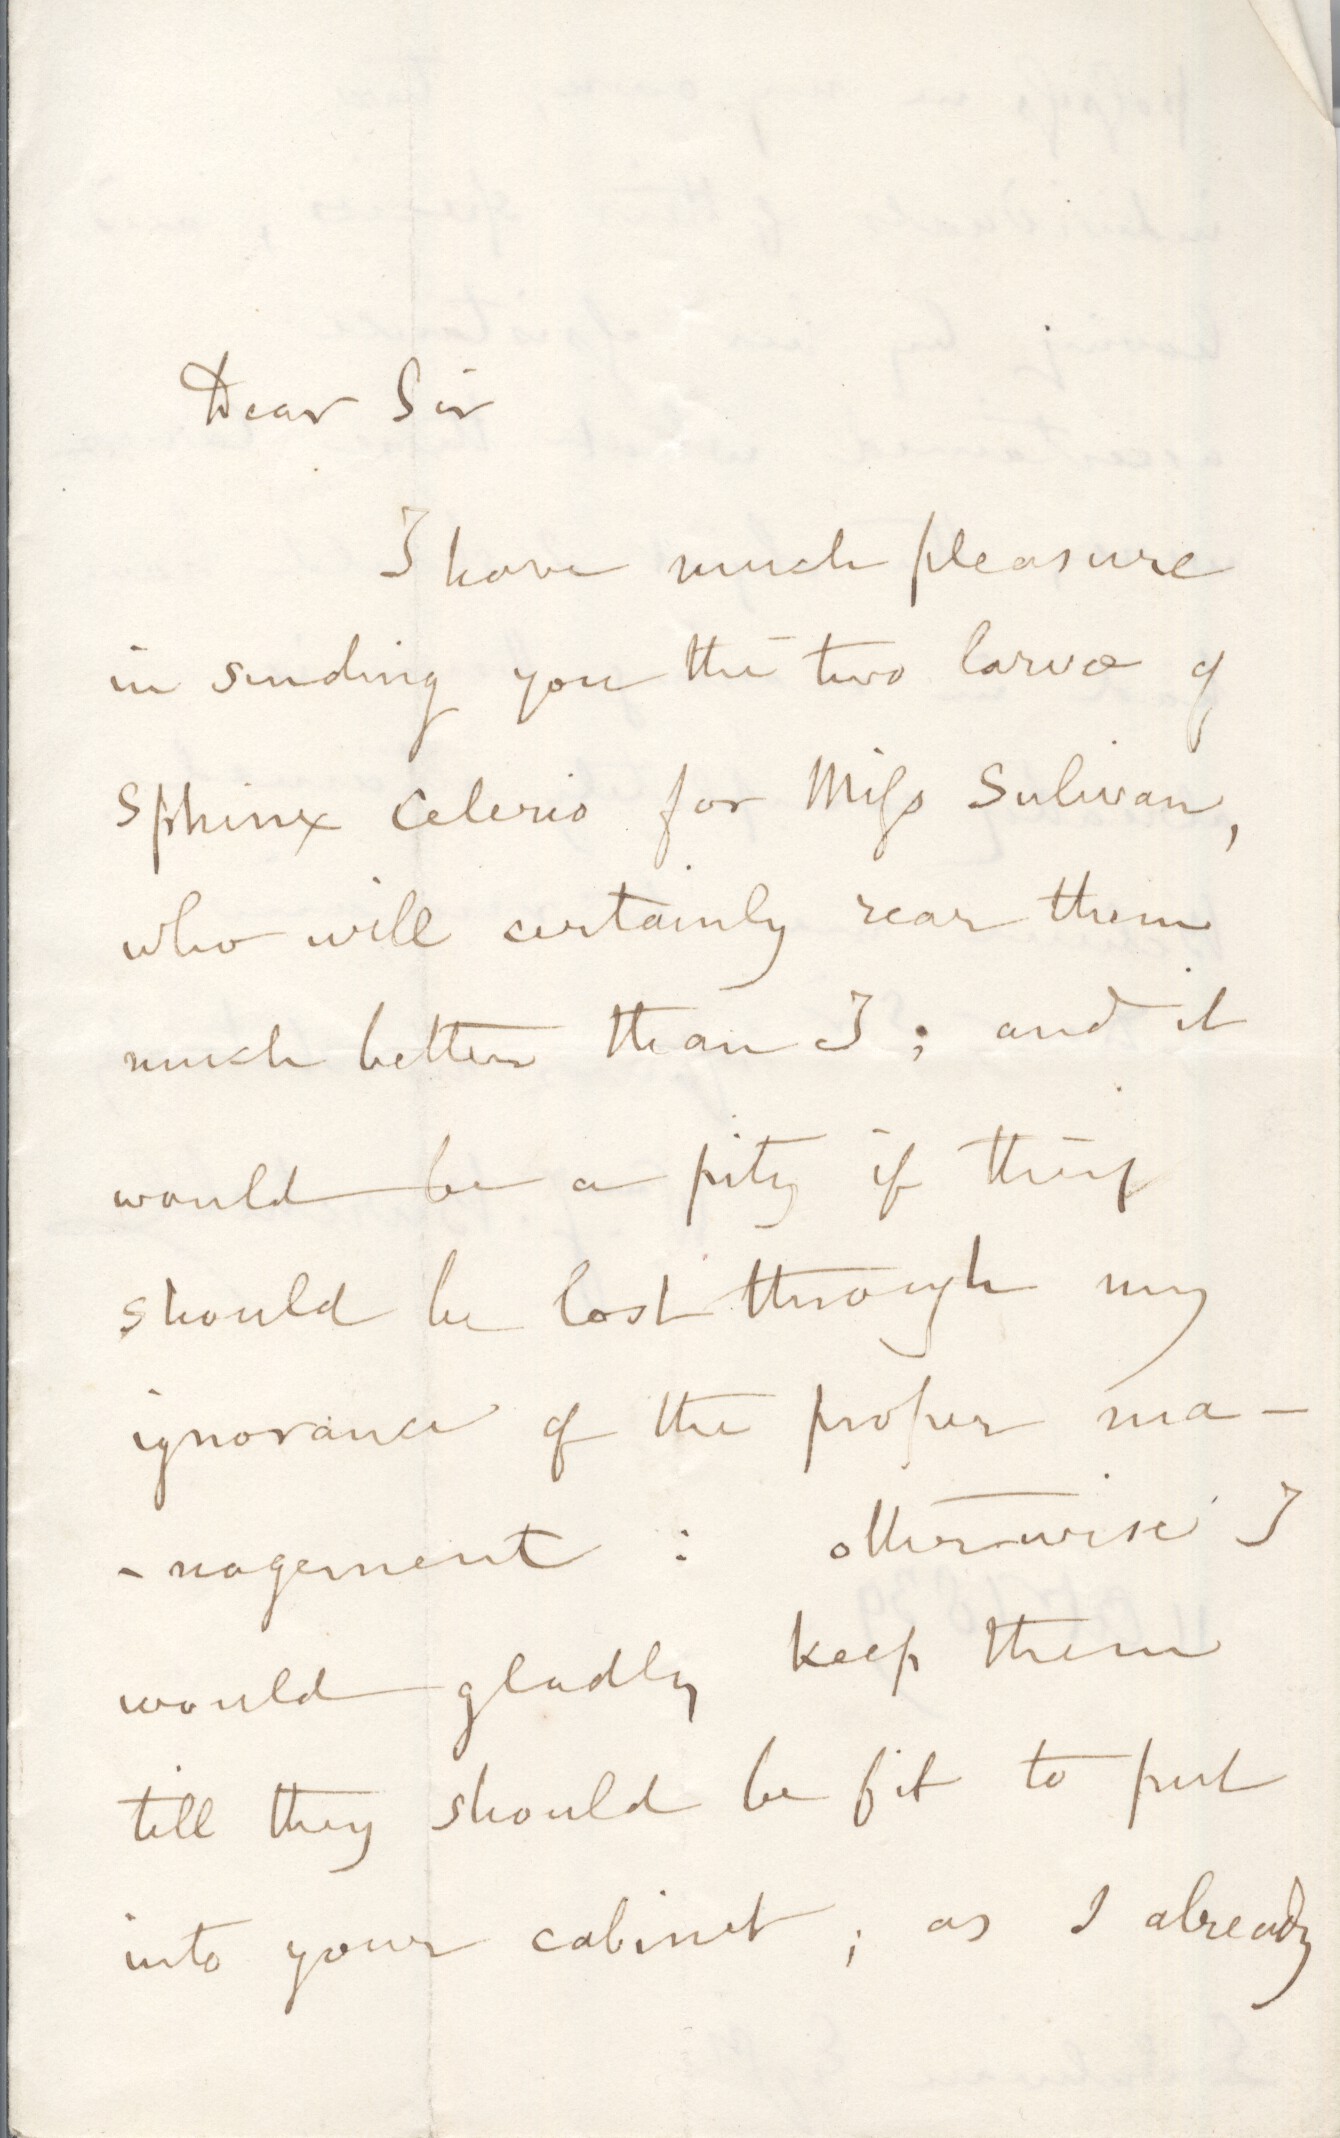 Dear Sir
I have much pleasure
in sending you the two larvæ of
Sphinx Celerio for Miss Sulivan,
who will certainly rear them
much better than I; and it
would be a pity if they
should be lost through my
ignorance of the proper ma-
-nagement : otherwise I
would gladly keep them
till they should be fit to put
into your cabinet ; as I already